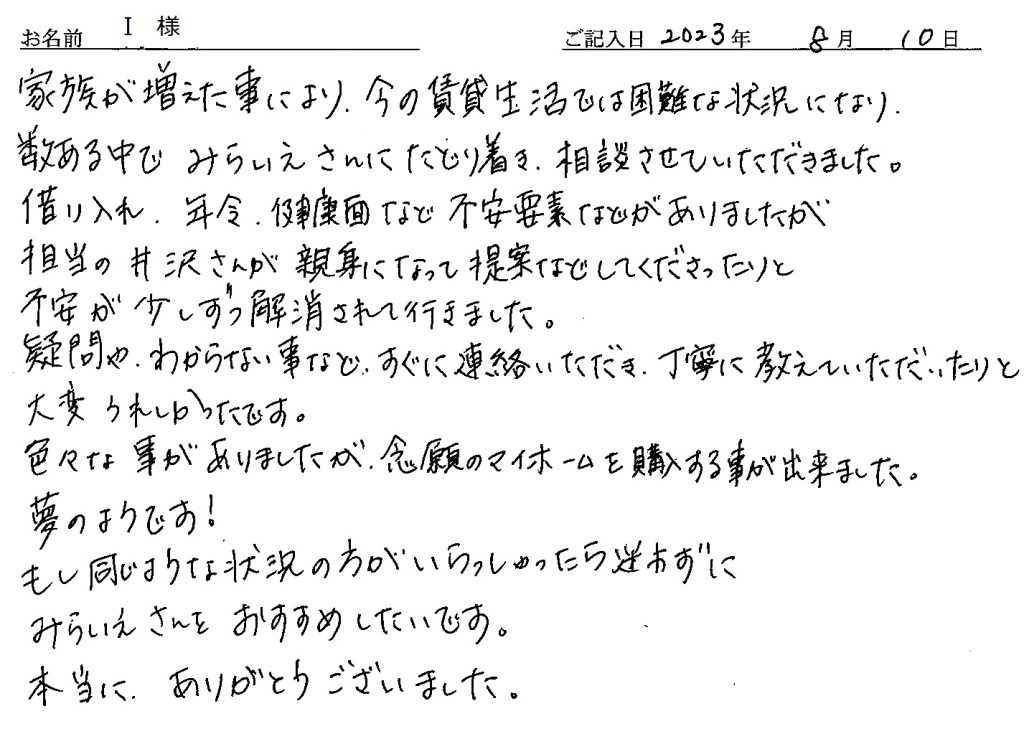 お名前 I 様 ご記入日 2023年 8月 10日
家族が増えた事により、今の賃貸生活では困難な状況になり、
数ある中で みらいえさんにたどり着き、相談させていただきました。
借り入れ、年令、健康面など不安要素などがありましたが
担当の井沢さんが親身になって提案などしてくださったりと
不安が少しずつ解消されて行きました。
疑問や、わからない事など、すぐに連絡いただき、丁寧に教えていただいたりと
大変うれしかったです。
色々な事がありましたが、念願のマイホームを購入する事が出来ました。
夢のようです!
もし同じような状況の方がいらっしゃったら迷わずに
みらいえさんを おすすめしたいです。
本当に、ありがとうございました。